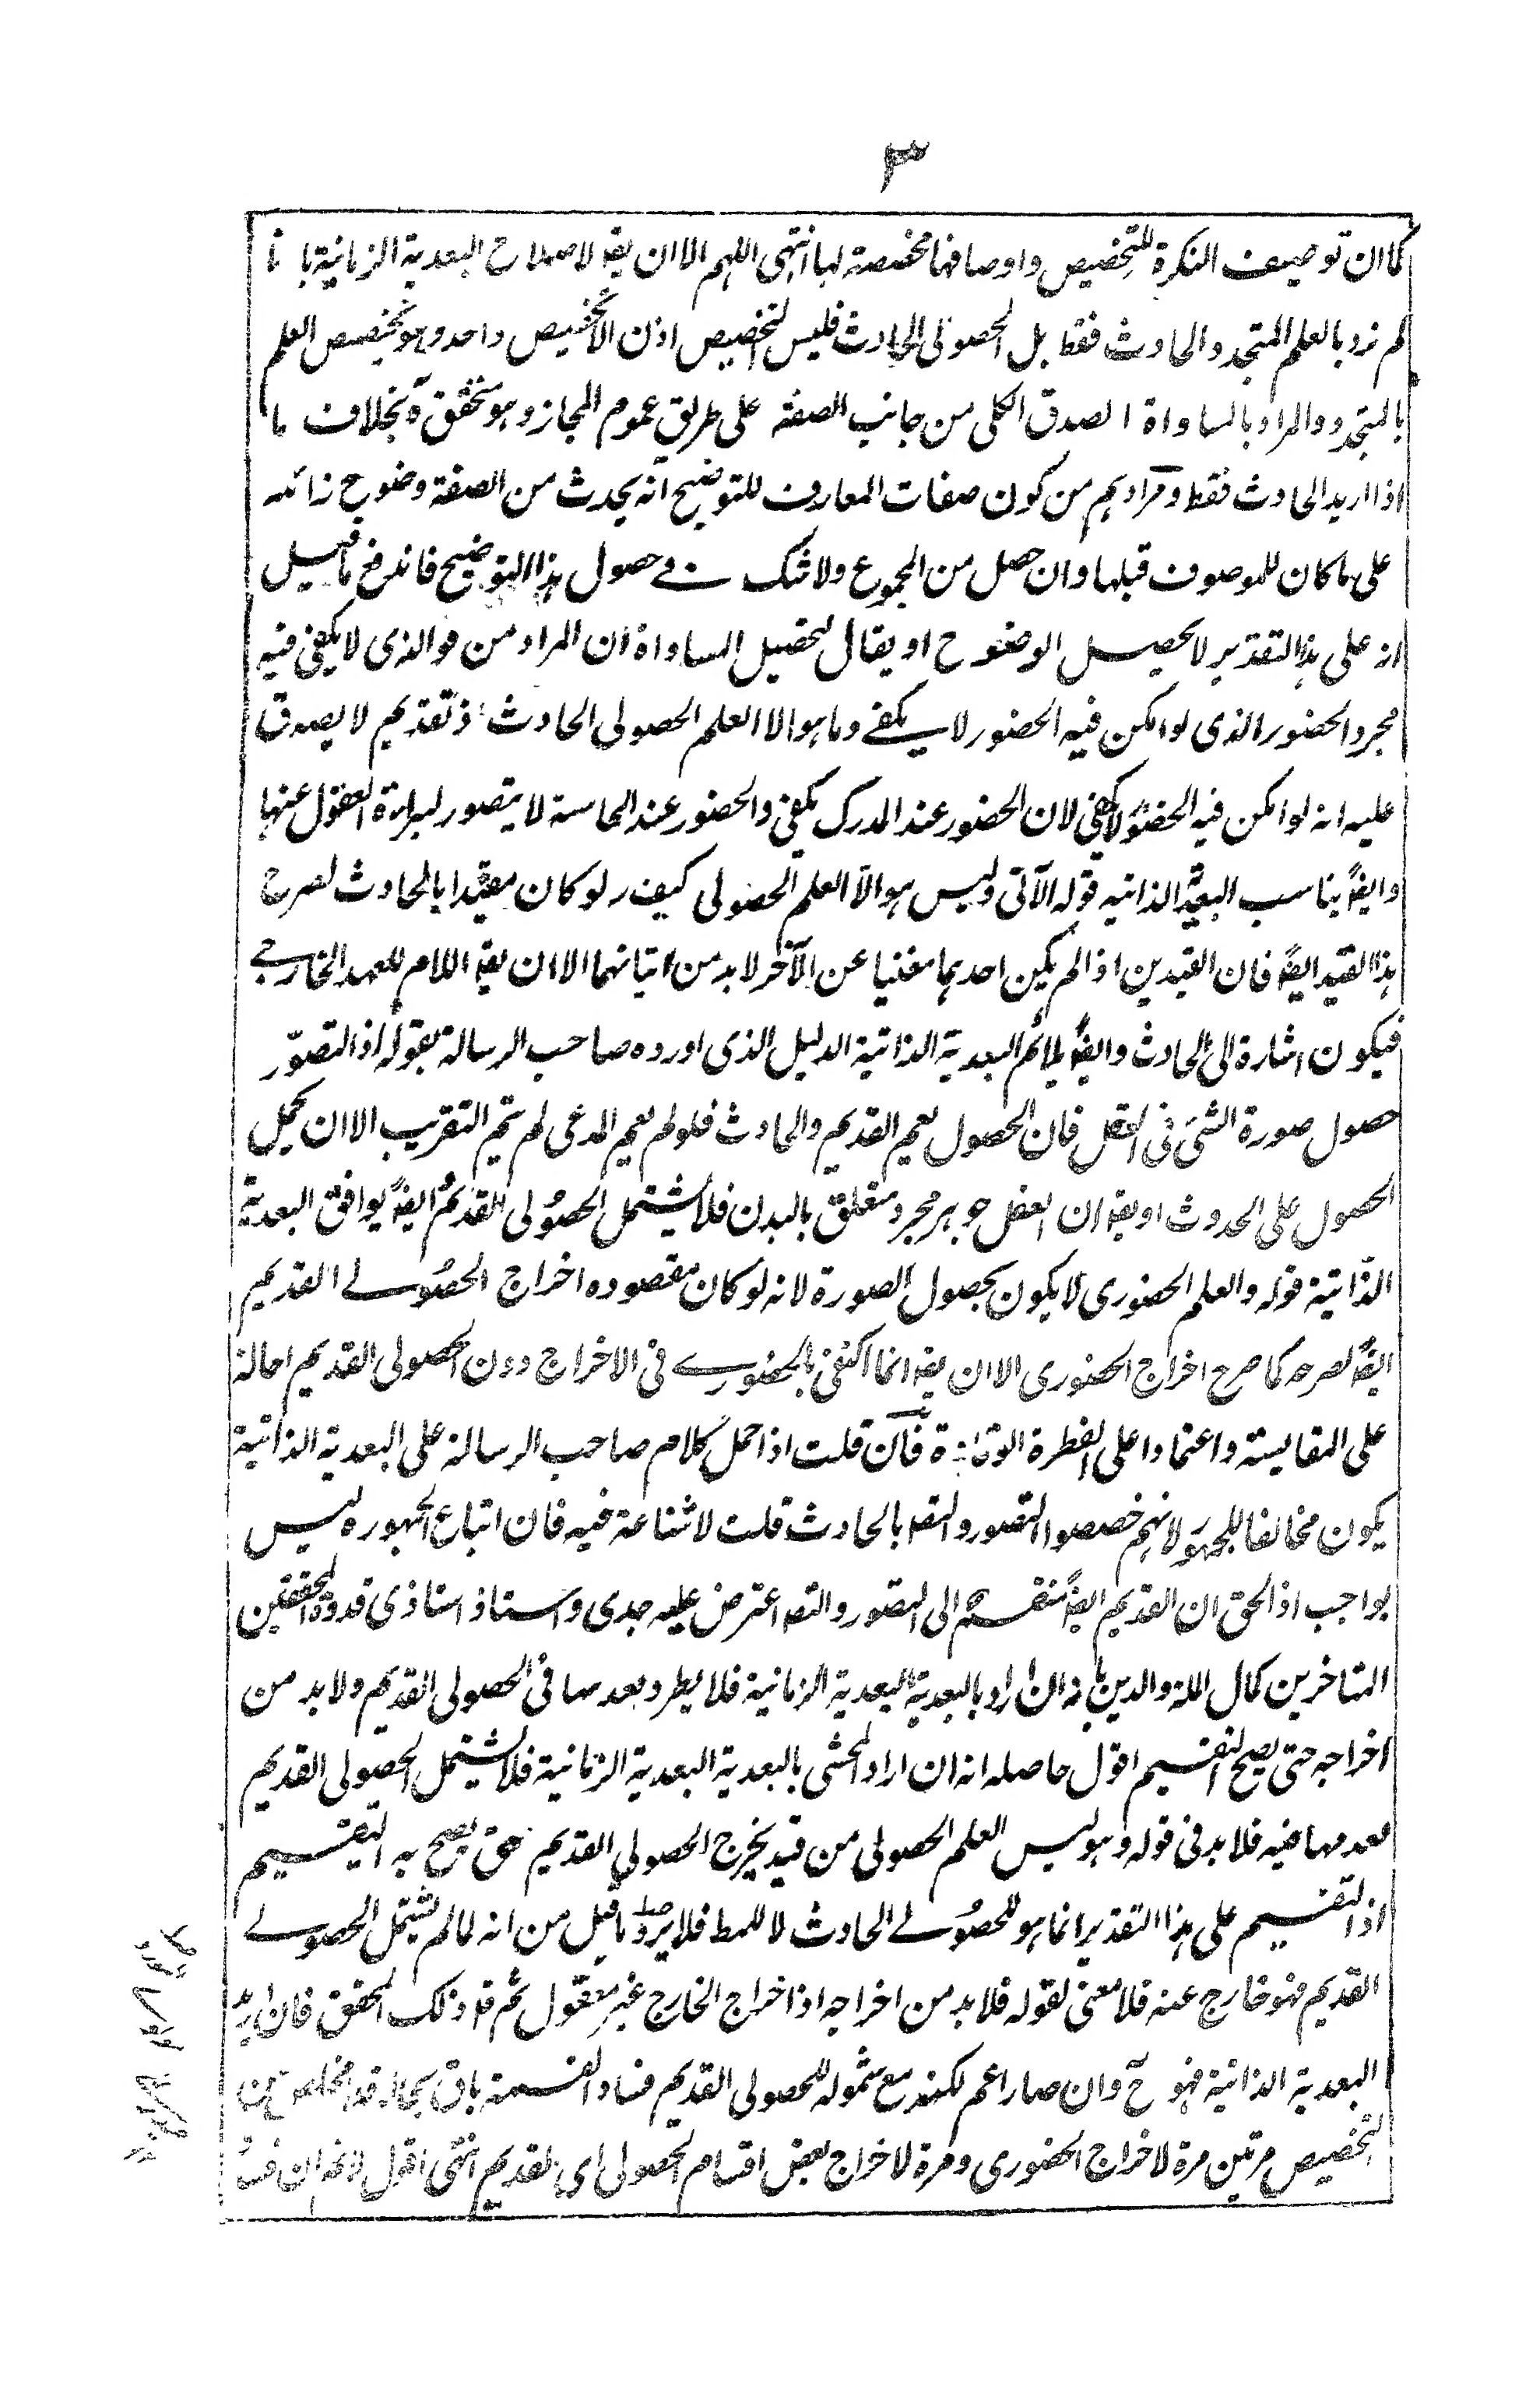 ٣
كما ان توصيف النكرة للتخصيص واوصافها مخصصة لها انتهى اللهم الا ان يقه لاصلاح البعدية الزمانية با نا
لم نرد بالعلم المتجدد الحادث فقط بل الحصولى الحادث فليس التخصيص اذن الا تخصيص واحد وهو تخصيص العلم
بالمتجدد والمراد بالمساواة الصدق الكلى من جانب الصفة على طريق عموم المجاز وهو متحقق ة بخلاف ما
اذا اريد الحادث فقط ومرادهم من كون صفات المعارف للتوضيح انه يحدث من الصفة وضوح زائد
على ما كان للموصوف قبلها وان حصل من المجموع ولا شك فى حصول هذا التوضيح فاندفع ما قيل
انه على هذا التقدير لا يحصل الوضوح او يقال لتحصيل المساواة ان المراد من هو الذى لا يكفى فيه
مجرد الحضور الذى لو امكن فيه الحضور لا يكفى وما هو الا العلم الحصولى الحادث اذ القديم لا يصدق
عليه انه لو امكن فيه الحضور لا يكفى لان الحضور عند المدرك يكفى والحضور عند الحاسة لا يتصور لبراءة العقول عنها
وايضاً يناسب البعدية الذاتيه قوله الآتى وليس هو الا العلم الحصولى كيف ولو كان مقيدا بالحادث لصرح
بهذا القيد ايضاً فان القيدين اذا لم يكن احدهما مغنيا عن الآخر لا بد من اتيانهما الا ان يقه اللام للعهد الخارجى
فيكون اشارة الى الحادث وايضاً يلائم البعدية الذاتية الدليل الذى اورده صاحب الرسالة بقوله اذ التصوّر
حصول صورة الشئ فى العقل فان الحصول يعم القديم والحادث فلو لم يعم المدعى لم يتم التقريب الا ان يحمل
الحصول على الحدوث او يقه ان العقل جوهر مجرد متعلق بالبدن فلا يشتمل الحصولى القديم ايضاً يوافق البعدية
الذّاتية قوله والعلم الحضورى لا يكون بحصول الصورة لانه لو كان مقصوده اخراج الحصولى القديم
ايضاً لصرحه كما صرح اخراج الحضورى الا ان يقه انما اكتفى بالحضورى فى الاخراج دون الحصولى القديم احالة
على المقايسة واعتمادا على الفطرة الوقادة فان قلت اذا حمل كلام صاحب الرسالة على البعدية الذاتية
يكون مخالفا للجمهور لانهم خصصوا التصور والتصه بالحادث قلت لا شناعة فيه فان اتباع الجمهوره ليس
بواجب اذ الحق ان القديم ايضاً منقسم الى التصور والتصه اعترض عليه جدى واستاذ استاذى قدوة المحققين
المتاخرين كمال الملة والدين بانه ان اراد بالبعدية البعدية الزمانية فلا يطرد بعدمها فى الحصولى القديم ولا بد من
اخراجه حتى يصح التقسيم اقول حاصله انه ان اراد المحشى بالبعدية البعدية الزمانية فلا يشتمل الحصولى القديم
لعدمها فيه فلا بد فى قوله وهو ليس العلم الحصولى من قيد يخرج الحصولى القديم حتى يصح به التقسيم
اذ التقسيم على هذا التقدير انما هو للحصولى الحادث لا للمط فلا يرد ما قيل من انه لما لم يشتمل الحصولى
القديم فهو خارج عنه فلا معنى لقوله فلا بد من اخراجه اذ اخراج الخارج غير معقول ثم قاد ذلك المحقق فان اريد
البعدية الذاتية فهو ح وان صار اعم لكنه مع شموله للحصولى القديم فساد القسمة باق بحاله قد
التخصيص مرتين مرة لاخراج الحضورى ومرة لاخراج بعض اقسام الحصولى اى القديم انتهى اقول